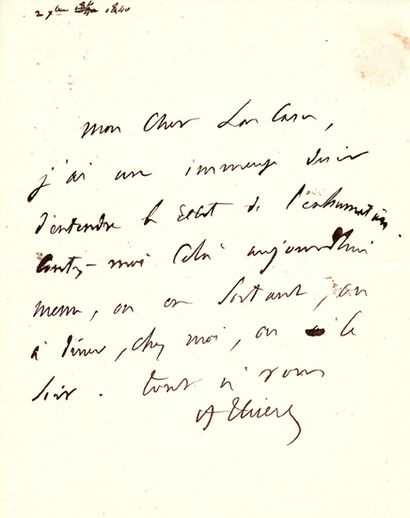 2 Xbre 1840
Mon cher Las Cases,
j'ai un immense désir
d'entendre le récit de l'exhumation
Contez-moi cela aujourd'hui
meme, ou en sortant, ou
à diner, chez moi, ou le
soir. tout à vous
A Thiers